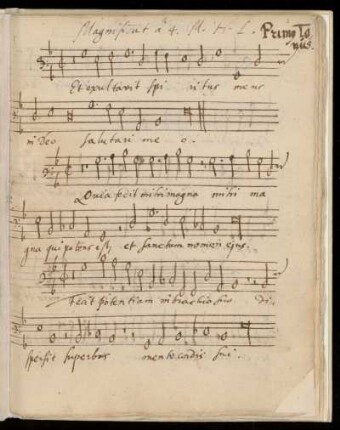 Magnificat a 4. M. H. L. Primo To
nus.
Et exultavit spi ritus meus
in deo salutari me o.
Quia fecit mihi magna mihi ma
gna qui potens est, et sanctum nomen ejus.
fecit potentiam in brachio suo di-
spersit superbos mente cordis sui.